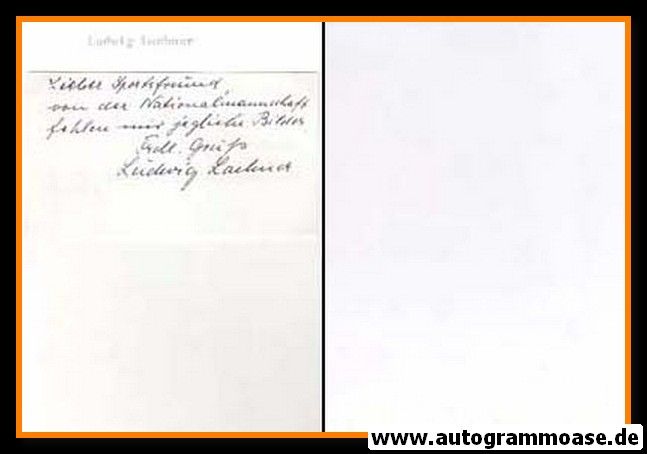 Ludwig Lachner
Lieber Sportsfreund,
von der Nationalmannschaft
fehlen mir jegliche Bilder.
Frdl. Gruß
Ludwig Lachner
www.autogrammoase.de